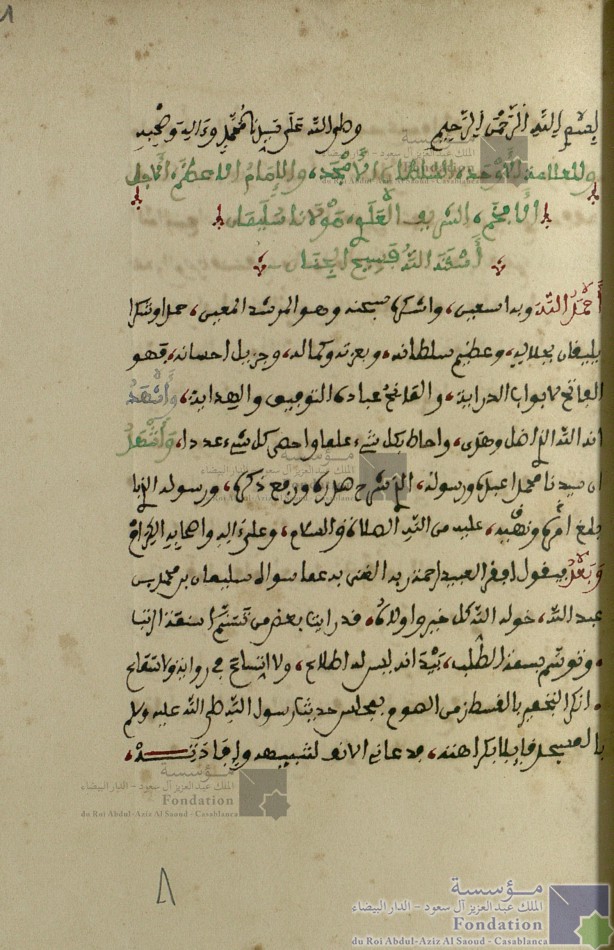 بسم الله الرحمن الرحيم وصلى الله على سيدنا محمد وءاله وصحبه
وللعلامة الأوحد، السلطان الأمجد، والإمام الاعظم، الأجل
الأفخم، الشريف العلوي، مولانا سليمان
أسكنه الله فسيح الجنان
أحمد الله وبه استعين، واشكره سبحنه وهو المرشد المعين، حمدا وشكرا
يليقان بجلاله، وعظيم سلطانه، وبعزته وكماله، وجزيل احسانه، فهو
الفاتح لابواب الدراية، والمانح عباده التوفيق والهداية، وأشهد
ان الله اضل وهدى، واحاط بكل شيء علما واحصى كل شيء عددا، وأشهد
ان سيدنا محمدا عبده ورسوله، الذي شرح صدره ورفع ذكره، ورسوله الذي
بلغ امره ونهيه، عليه من الله الصلاة والسلام، وعلى ءاله واصحابه الكرام
وبعد فيقول افقر العبيد لرحمة ربه الغني به عما سواه سليمان بن محمد بن
عبد الله، خوله الله كل خير واولاه، قد راينا بعض من تسنم اسنمة الرتب
وتوسم بسمة الطلب، بيد انه ليس له اطلاع، ولا اتساع في رواية ولا انتفاع
انكر التبخير بالقسط من العود بمجلس حديث رسول الله صلى الله عليه وسلم
بالمسجد قايلا بكراهته، فدعاني الانف لتنبيهه وإفادته،
مؤسسة
الملك عبد العزيز آل سعود - الدار البيضاء
Fondation
du Roi Abdul-Aziz Al Saoud - Casablanca